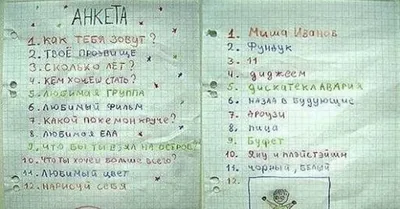 АНКЕТА
1. КАК ТЕБЯ ЗОВУТ?
2. ТВОЁ ПРОЗВИЩЕ
3. СКОЛЬКО ЛЕТ?
4. КЕМ ХОЧЕШ СТАТЬ?
5. ЛЮБИМАЯ ГРУППА
6. ЛЮБИМЫЙ ФИЛЬМ
7. КАКОЙ ПОКЕМОН КРУЧЕ?
8. ЛЮБИМАЯ ЕДА
9. ЧТО БЫ ТЫ ВЗЯЛ НА ОСТРОВ
10. ЧТО ТЫ ХОЧЕШ БОЛЬШЕ ВСЕГО?
11. ЛЮБИМЫЙ ЦВЕТ
12. НАРИСУЙ СЕБЯ
1. Миша Иванов
2. Фундук
3. 11
4. диджеем
5. ДИСКОТЕКЛАВАРИЯ
6. назад в будующие
7.Ароузи
8. пица
9. Буфет
10. Яну и плэйстэйшн
11. чорный, белый
12.